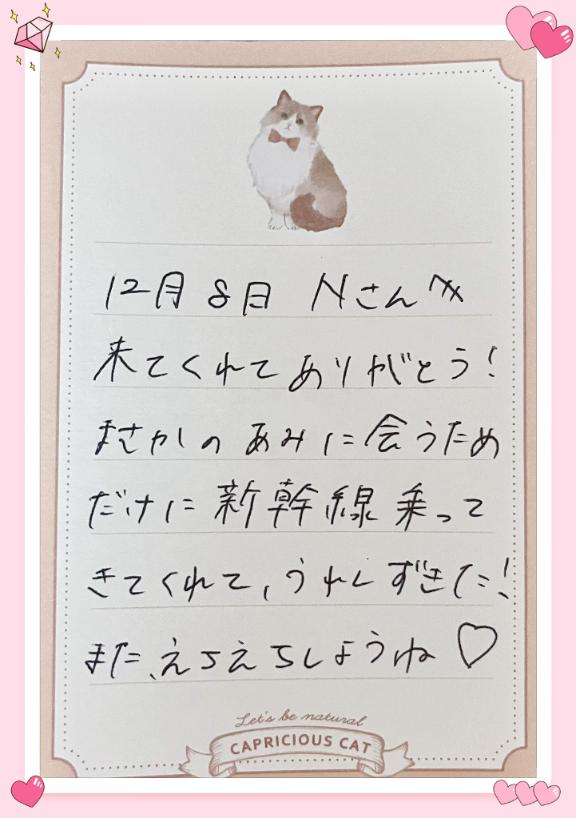 12月8日 Nさんへ
来てくれてありがとう!
まさかの あみに会うため
だけに新幹線乗って
きてくれて、うれしずきた!
また、えちえちしようね♡
Let's be natural
CAPRICIOUS CAT